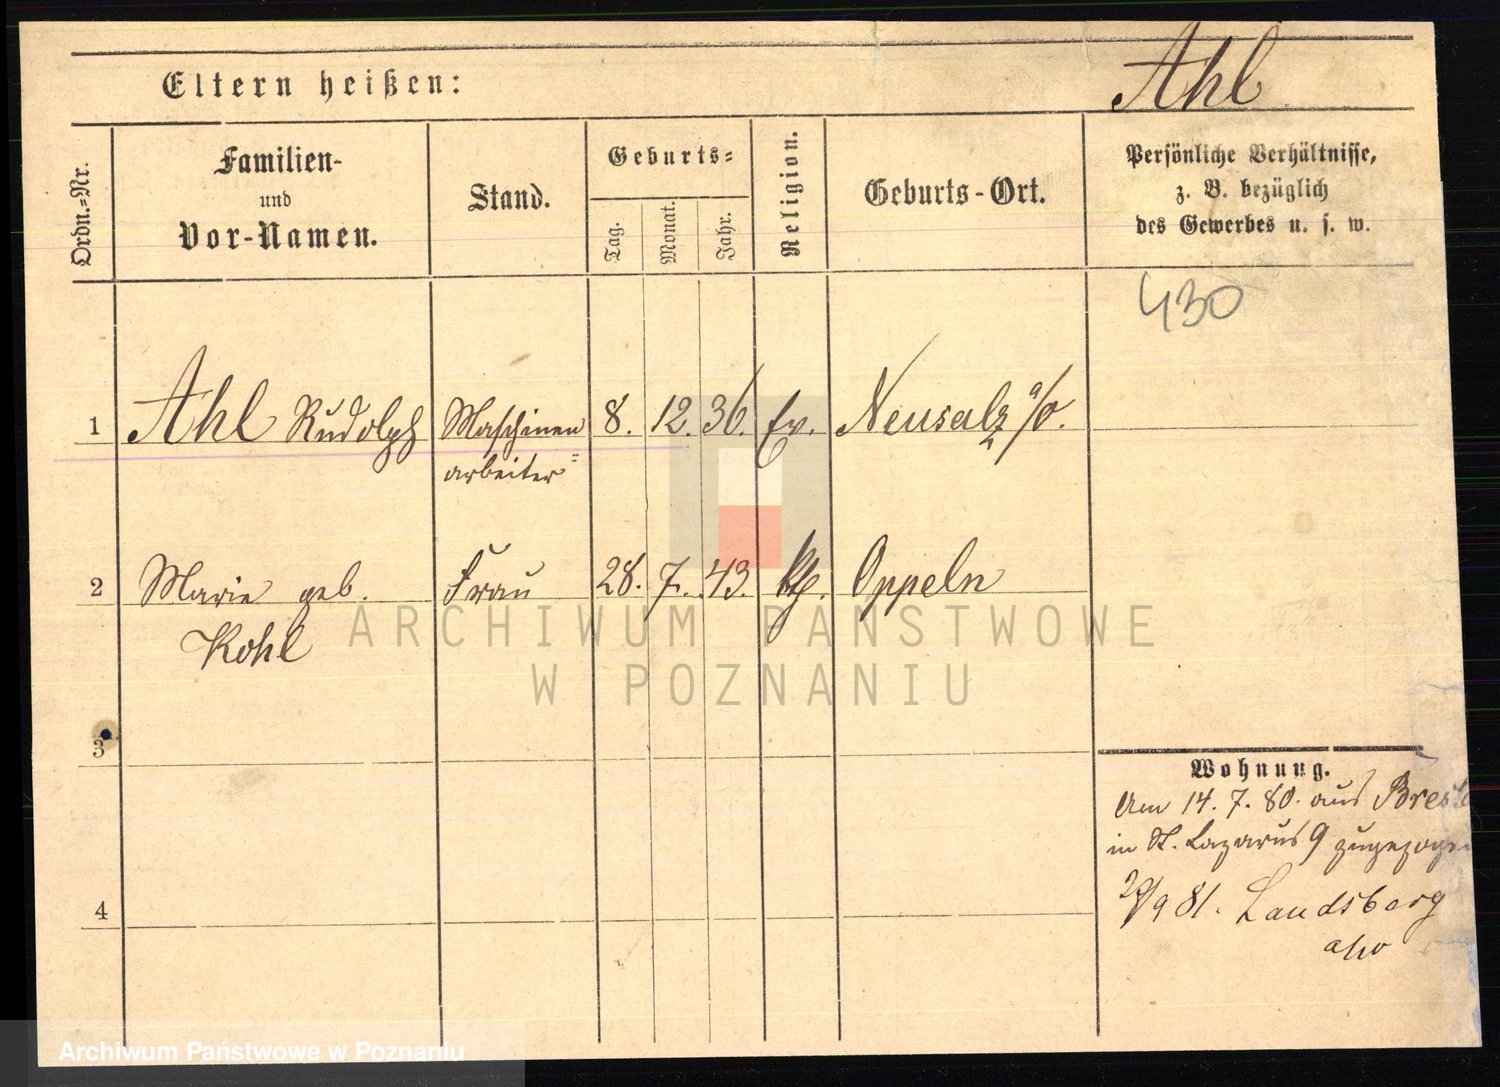 Eltern heißen:
Ahl
Ordn.-Nr.
Familien-
und
Vor-Namen.
Stand.
Geburts-
Tag.
Monat.
Jahr.
Religion.
Geburts-Ort.
Persönliche Verhältnisse,
z. B. bezüglich
des Gewerbes u. s. w.
430
1 Ahl Rudolph Maschinen 8. 12. 36. Ev. Neusalz a/O.
arbeiter
2 Marie geb. Frau 28. 7. 43. kth. Oppeln
Kohl
ARCHIWUM PAŃSTWOWE
W POZNANIU
3
Wohnung.
Am 14. 7. 80. aus Bresla
in St. Lazarus 9 zugezogen
9 81. Landsberg
4
Archiwum Państwowe w Poznaniu